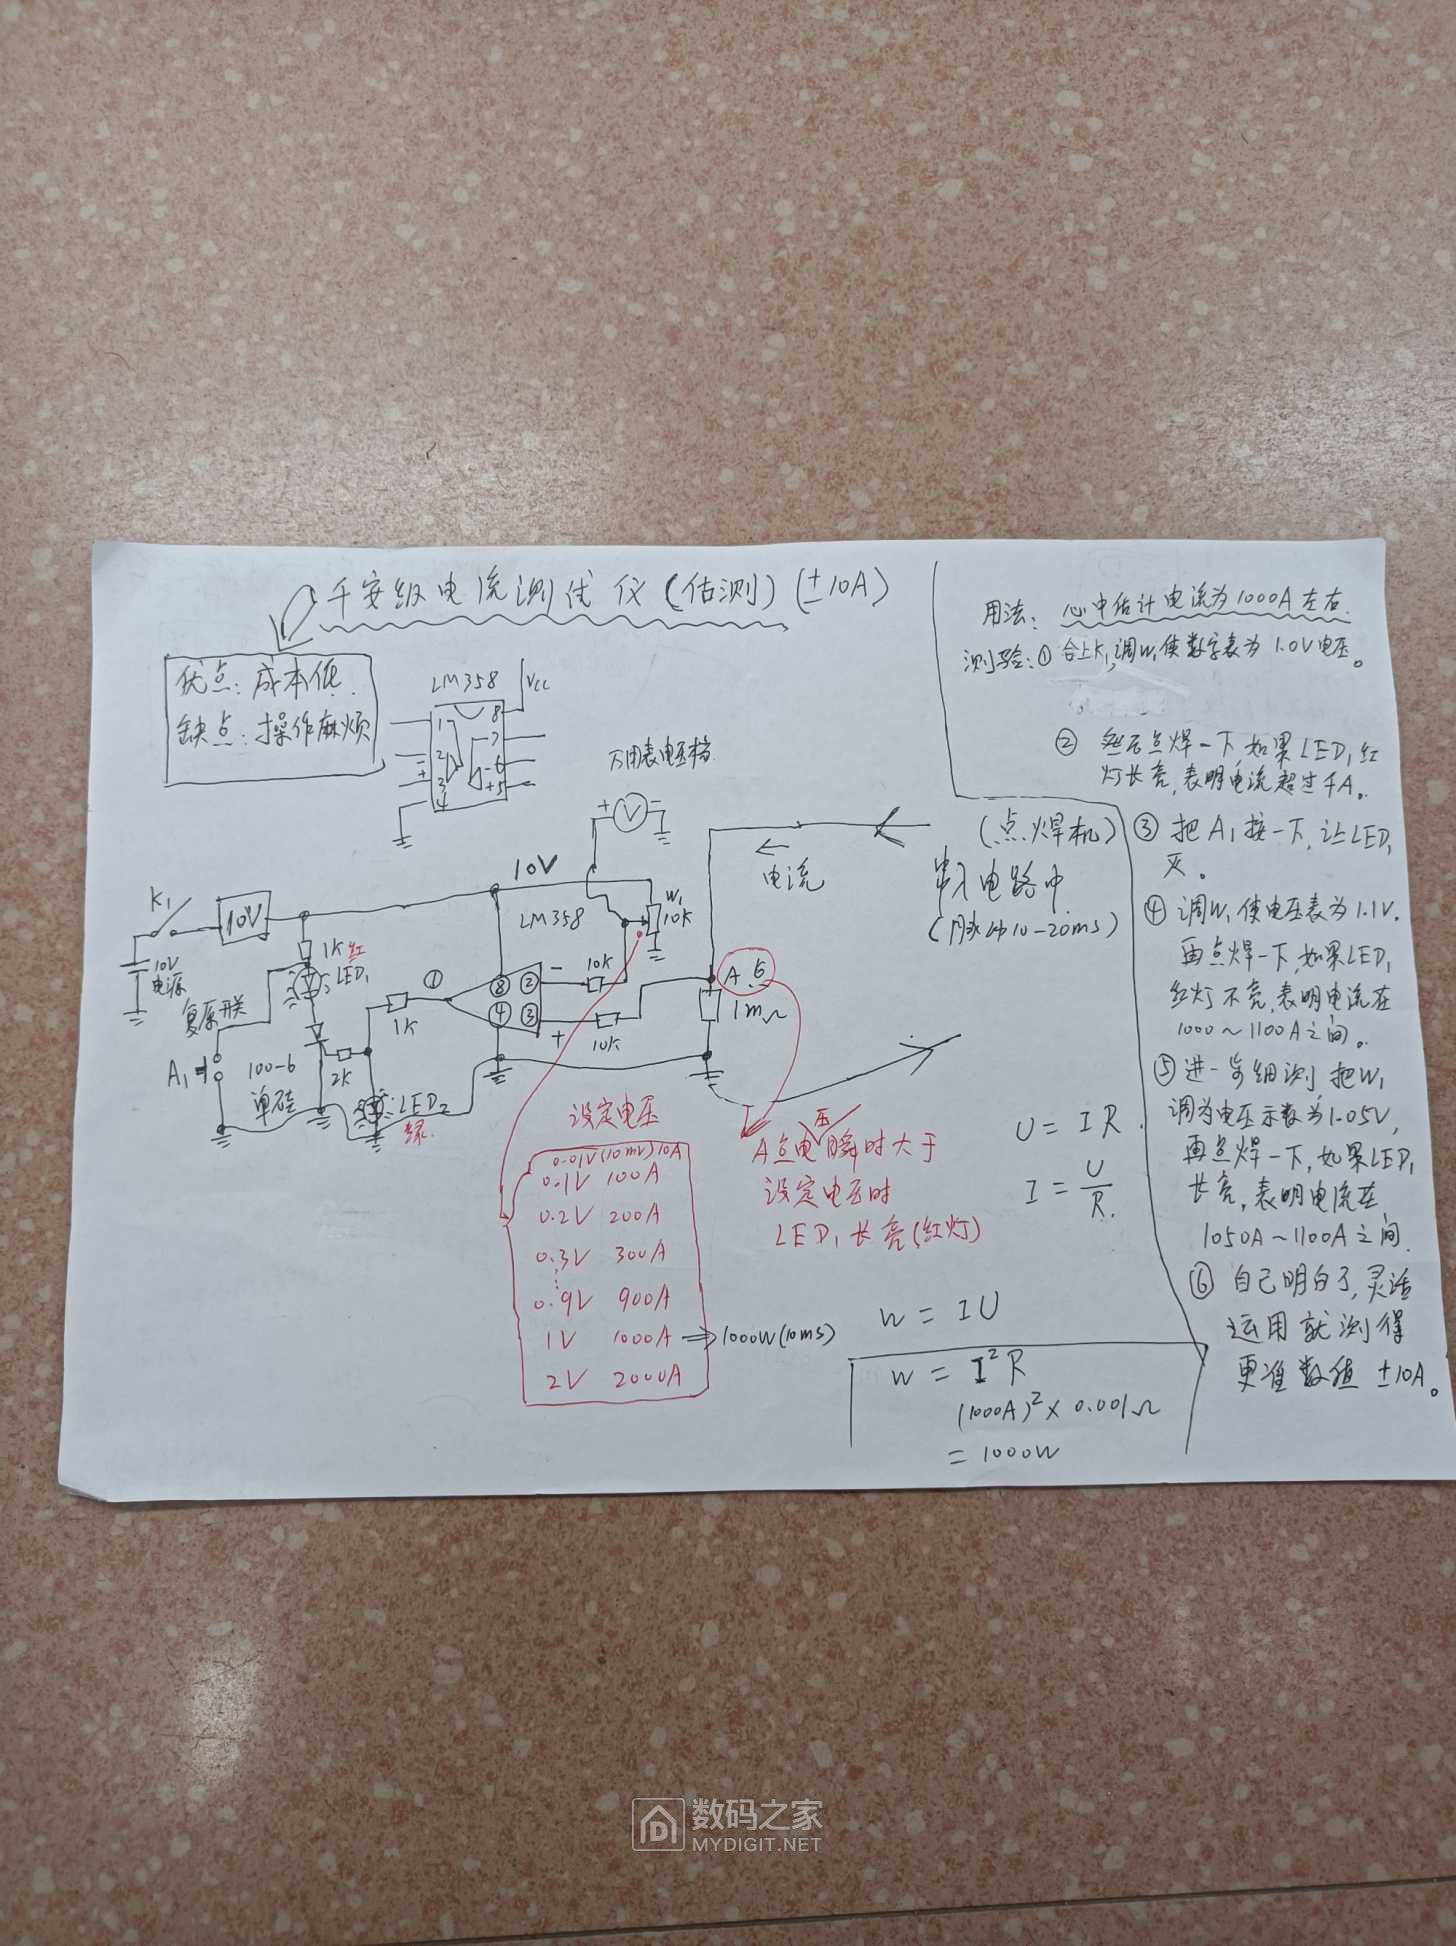 千安级电流测试仪(估测)(±10A)
优点:成本低.
缺点:操作麻烦
LM358
VCC
1
8
2
7
-
-6
+
3
+5
4
万用表电压档.
+
V
-
10V
LM358
W1
10K
K1
10V
10V
电源
1K
红
LED1
复原开关
A1
100-6
单硅
2K
LED2
绿.
①
1K
⑧
②
④
③
-
+
10K
10K
A点
1mΩ
←
电流
(点焊机)
串入电路中
(脉冲10-20ms)
设定电压
0.01V(10mV)10A
0.1V 100A
0.2V 200A
0.3V 300A
0.9V 900A
1V 1000A ⇒1000W(10ms)
2V 2000A
压
A点电瞬时大于
设定电压时
LED1长亮(红灯)
U = IR.
I = U/R.
W = IU
W = I²R
(1000A)²×0.001Ω
= 1000W
用法: 心中估计电流为1000A左右.
测验:①合上K1,调W1使数字表为1.0V电压。
② 然后点焊一下,如果LED1红
灯长亮,表明电流超过千A。
③ 把A1按一下,让LED1
灭。
④ 调W1使电压表为1.1V.
再点焊一下,如果LED1
红灯不亮,表明电流在
1000~1100A之间。
⑤ 进一步细测,把W1
调为电压示数为1.05V,
再点焊一下,如果LED1
长亮,表明电流在
1050A~1100A之间.
⑥ 自己明白了,灵活
运用就测得
更准数值 ±10A。
数码之家
MYDIGIT.NET